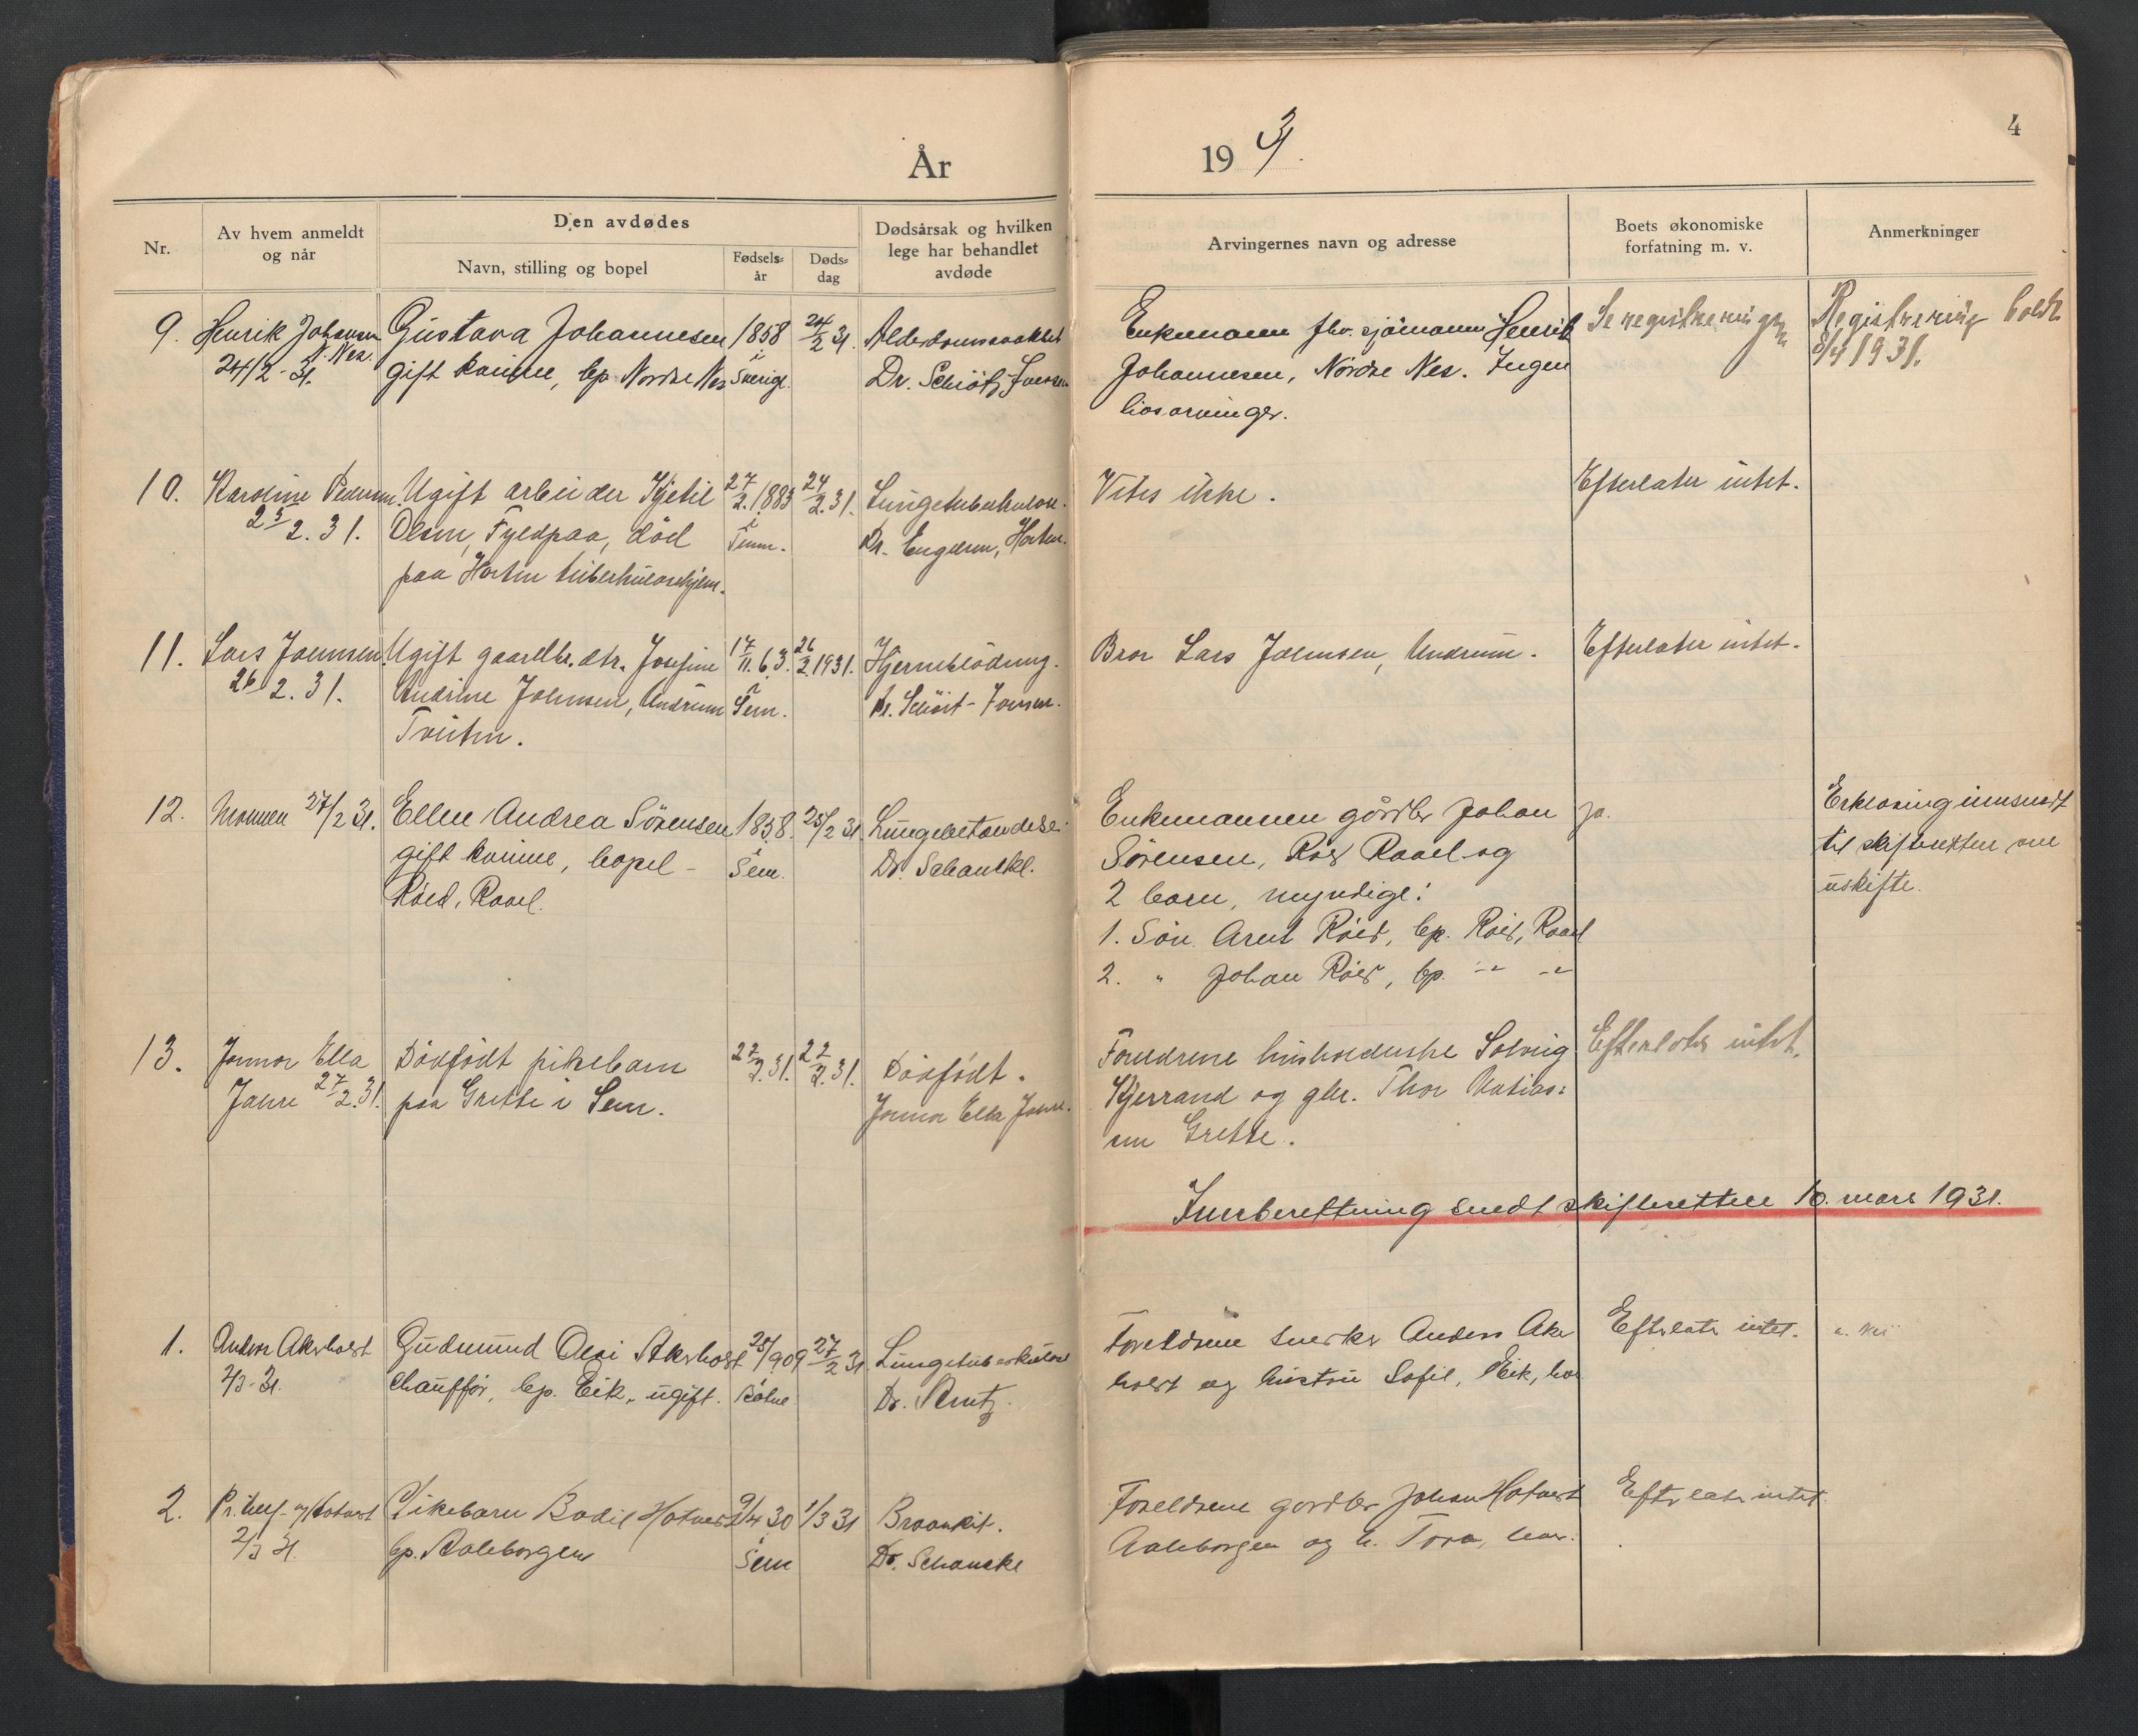 År 1931.
4
Nr.
Av hvem anmeldt
og når
Den avdødes
Navn, stilling og bopel
Fødsels-
år
Døds-
dag
Dødsårsak og hvilken
lege har behandlet
avdøde
Arvingernes navn og adresse
Boets økonomiske
forfatning m. v.
Anmerkninger
9. Henrik Johansen
N. Nes.
24/2-31.
Gustava Johannesen
gift kvinne, bp. Nordre Nes
1858
i
Sverige.
24/2 31.
Alderdomssvakhet
Dr. Schiøtz
Enkemann fhv. sjømann Henrik
Johannesen, Nordre Nes. Ingen
livsarvinger.
Se registreringen
Registrering holdt
8/4 1931.
10. Karoline Pedersen
25/2.31.
Ugift arbeider Kjetil
Olsen, Fyldpaa, død
paa Horten tuberkulosehjem.
27/2.1883
i
24/2.31.
Lungetuberkulose.
Dr. Engelsen, Horten.
Vites ikke.
Efterlater intet.
11. Lars Johnsen
26/2.31.
Ugift gaardbr.dtr. Josefine
Andrine Johnsen, Undrum
Tveiten.
17/11.63.
i
Sem.
26/2.1931.
Hjerneblødning.
Bror Lars Johnsen, Undrum.
Efterlater intet.
12. Mannen 27/2 31.
Ellen Andrea Sørensen
gift kvinne, bopel -
Røed, Raael.
1858.
i
Sem.
25/2 31.
Lungebetændelse.
Dr. Schanckl.
Enkemannen gårdbr Johan
Sørensen, Røed Raael og
2 barn, myndige:
1. Søn Arnt Røed, bp. Røed, Raael
2. " Johan Røed, bp. -"- -"-
Ja.
Erklæring innsendt
til skifteretten om
uskifte.
13. Jormor Ella
Jahre 27/2.31.
Dødfødt pikebarn
paa Grette i Sem.
22/2.31.
22/2.31.
Dødfødt.
Jormor Ella Jahre.
Foreldrene husholderske Solveig
Kjerrand og gbr. Thor Matias-
sen Grette.
Efterlater intet.
Innberettning sendt skifteretten 10. mars 1931.
1. Anders Akerholt
2/3-31.
Gudmund Olai Akerholt
chauffør, bp. Eik, ugift.
25/ 909
Botne
27/2 31
Lungetuberkulose
Dr. Arntz.
Foreldrene snekker Anders Aker
holt og hustru Sofie, Eik, her
Efterlater intet.
2. Pr. telef. og Hotvedt
2/3 31.
Pikebarn Bodil Hotvedt
bp. Aaleborgen
9/4 30
i
Sem
1/3 31
Bronkit.
Dr. Schancke
Foreldrene gårdbr Johan Hotvedt
Aaleborgen og h. Tora, her.
Efterlater intet